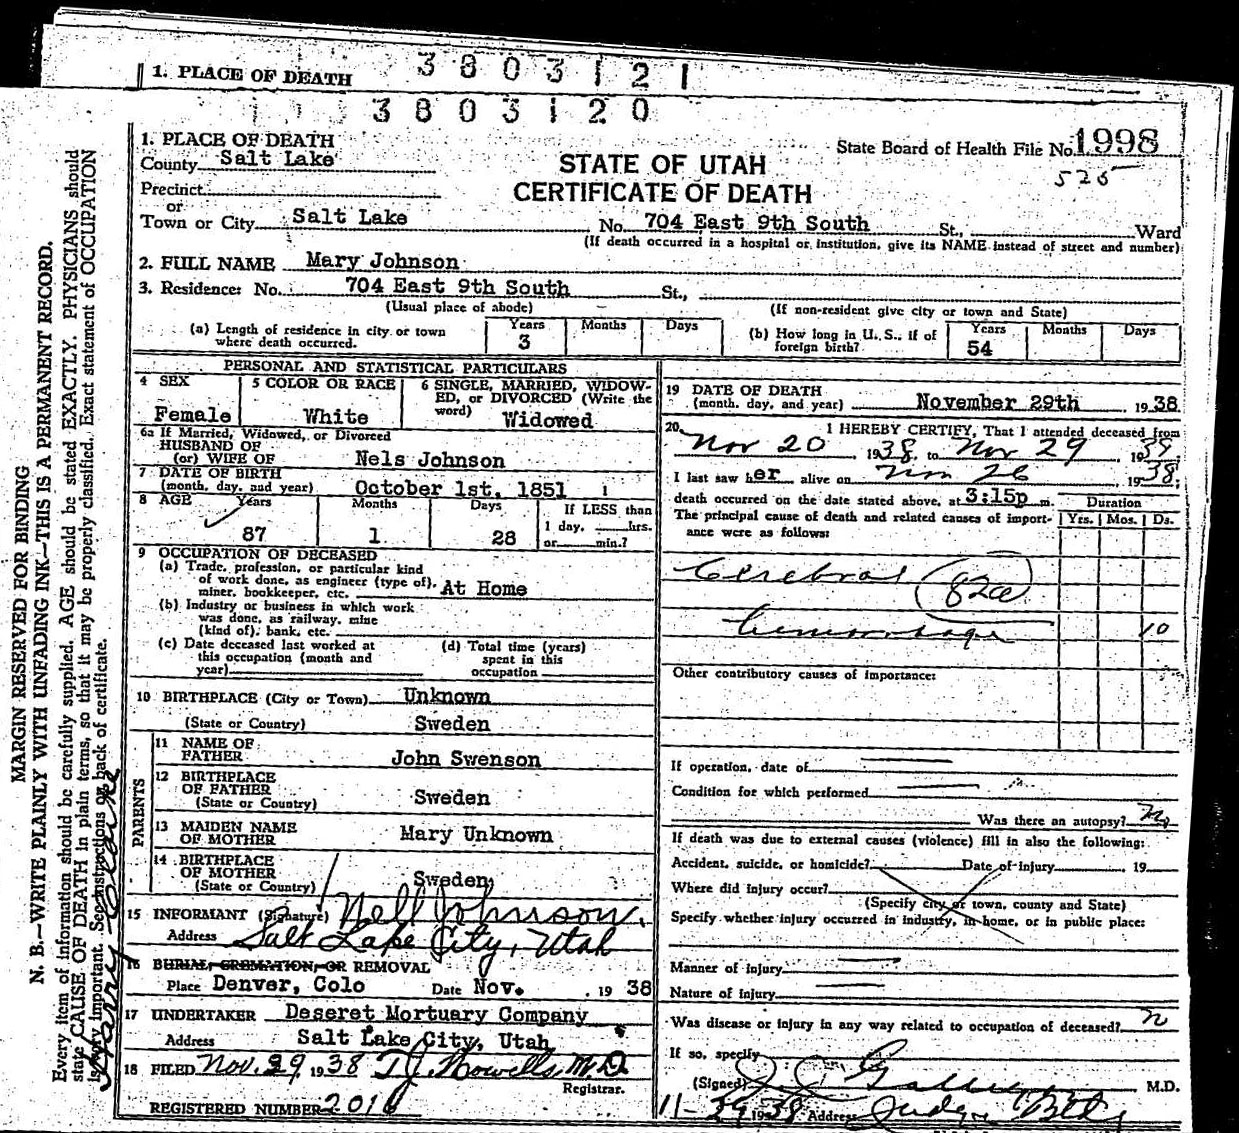 1. PLACE OF DEATH 3803121
3803120
1. PLACE OF DEATH
County Salt Lake
Precinct
or
Town or City Salt Lake
STATE OF UTAH
CERTIFICATE OF DEATH
State Board of Health File No. 1998
525
No. 704 East 9th South St., Ward
(If death occurred in a hospital or institution, give its NAME instead of street and number)
2. FULL NAME Mary Johnson
3. Residence: No. 704 East 9th South St.,
(Usual place of abode) (If non-resident give city or town and State)
(a) Length of residence in city or town where death occurred. Years 3 Months Days
(b) How long in U. S., if of foreign birth? Years 54 Months Days
PERSONAL AND STATISTICAL PARTICULARS
4 SEX Female
5 COLOR OR RACE White
6 SINGLE, MARRIED, WIDOWED, or DIVORCED (Write the word) Widowed
6a If Married, Widowed, or Divorced
HUSBAND OF
(or) WIFE OF Nels Johnson
7 DATE OF BIRTH
(month, day, and year) October 1st, 1851
8 AGE Years 87 Months 1 Days 28 If LESS than 1 day, hrs. or min.?
9 OCCUPATION OF DECEASED
(a) Trade, profession, or particular kind
of work done, as engineer (type of),
miner, bookkeeper, etc. At Home
(b) Industry or business in which work
was done, as railway, mine
(kind of), bank, etc.
(c) Date deceased last worked at
this occupation (month and
year)
(d) Total time (years)
spent in this
occupation
10 BIRTHPLACE (City or Town) Unknown
(State or Country) Sweden
PARENTS
11 NAME OF
FATHER John Swenson
12 BIRTHPLACE
OF FATHER
(State or Country) Sweden
13 MAIDEN NAME
OF MOTHER Mary Unknown
14 BIRTHPLACE
OF MOTHER
(State or Country) Sweden
15 INFORMANT (Signature) Nell Johnson.
Address Salt Lake City, Utah
16 BURIAL, CREMATION, OR REMOVAL
Place Denver, Colo Date Nov. 1938
17 UNDERTAKER Deseret Mortuary Company
Address Salt Lake City, Utah
18 FILED Nov. 29, 1938 T J Howells M.D.
Registrar.
REGISTERED NUMBER 2016
19 DATE OF DEATH
(month, day, and year) November 29th 1938
20. I HEREBY CERTIFY, That I attended deceased from
Nov 20 1938, to Nov 29 19
I last saw her alive on Nov 26 1938;
death occurred on the date stated above, at 3:15p m.
The principal cause of death and related causes of importance were as follows:
Duration
Yrs. Mos. Ds.
Cerebral 82a
hemorrhage 10
Other contributory causes of importance:
If operation, date of
Condition for which performed
Was there an autopsy? No
If death was due to external causes (violence) fill in also the following:
Accident, suicide, or homicide? Date of injury 19
Where did injury occur?
(Specify city or town, county and State)
Specify whether injury occurred in industry, in home, or in public place:
Manner of injury
Nature of injury
Was disease or injury in any way related to occupation of deceased? n
If so, specify
(Signed) M.D.
11-29 1938 Address Judge Bldg
MARGIN RESERVED FOR BINDING
N. B.—WRITE PLAINLY WITH UNFADING INK—THIS IS A PERMANENT RECORD.
Every item of information should be carefully supplied. AGE should be stated EXACTLY. PHYSICIANS should
state CAUSE OF DEATH in plain terms, so that it may be properly classified. Exact statement of OCCUPATION
is very important. See instructions on back of certificate.